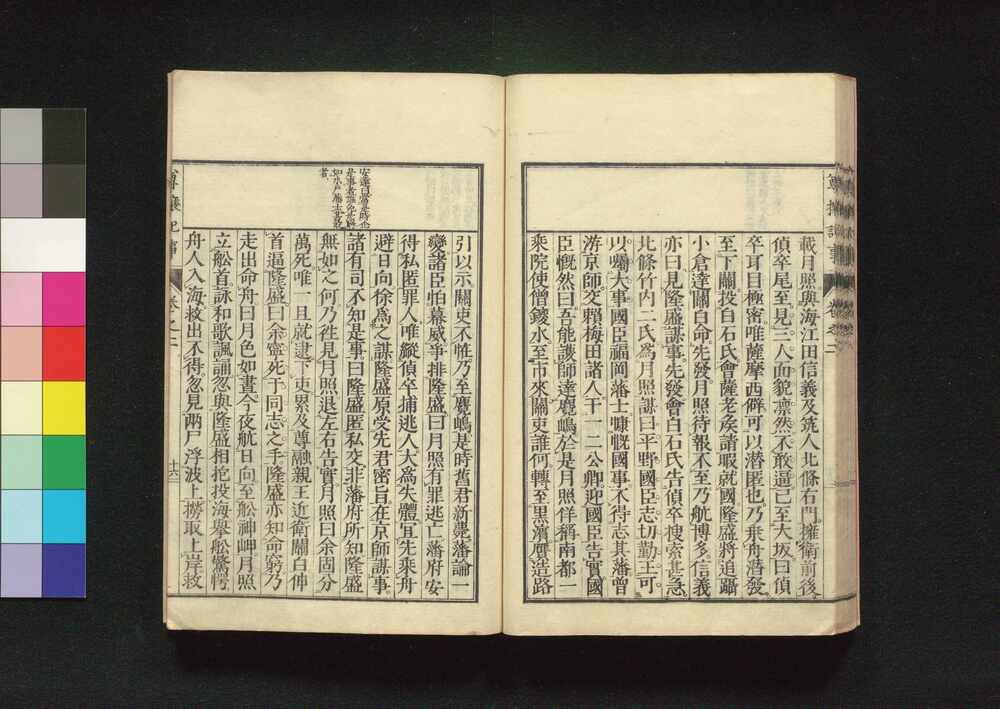 載月照與海江田信義及筑人北條右門擁衛前後
偵卒尾至見三人面貌凛然不敢逼已至大坂曰偵
卒耳目極密唯薩摩西僻可以潜匿也乃乘舟潜發
至下關投白石氏會薩老矦請暇就國隆盛將追躡
小倉達關白命先發月照待報不至乃航博多信義
亦曰見隆盛謀事先發會白石氏告偵卒搜索甚急
北條竹内二氏為月照謀曰平野國臣志切勤王可
以囑大事國臣福岡藩士慷慨國事不得志其藩曾
游京師交賴梅田諸人干一二公卿迎國臣告實國
臣慨然曰吾能護師達麑嶋於是月照佯稱南都一
乘院使僧鍐水至市來關吏誰何轉至黒濱贋造路
尊攘記事 卷之二
引以示關吏不怪乃至麑嶋是時舊君新薨藩論一
變諸臣怕幕威爭排隆盛曰月照有罪逃亡藩府安
得私匿罪人唯縱偵卒捕逃人大為失體宜先乘舟
避日向徐為之謀隆盛原受先君密旨在京師謀事
諸有司不知是事曰隆盛匿私交非藩府所知隆盛
無如之何乃徃見月照退左右告實月照曰余固分
萬死唯一且就逮下吏累及尊融親王近衛關白伸
首逼隆盛曰余寧死于同志之手隆盛亦知命窮乃
走出命舟曰月色如晝今夜航日向至舩神岬月照
立舩首詠和歌諷誦忽與隆盛相抱投海擧舩驚愕
舟人入海救出不得忽見兩尸浮波上撈取上岸救
尊攘記事 卷之二 十六